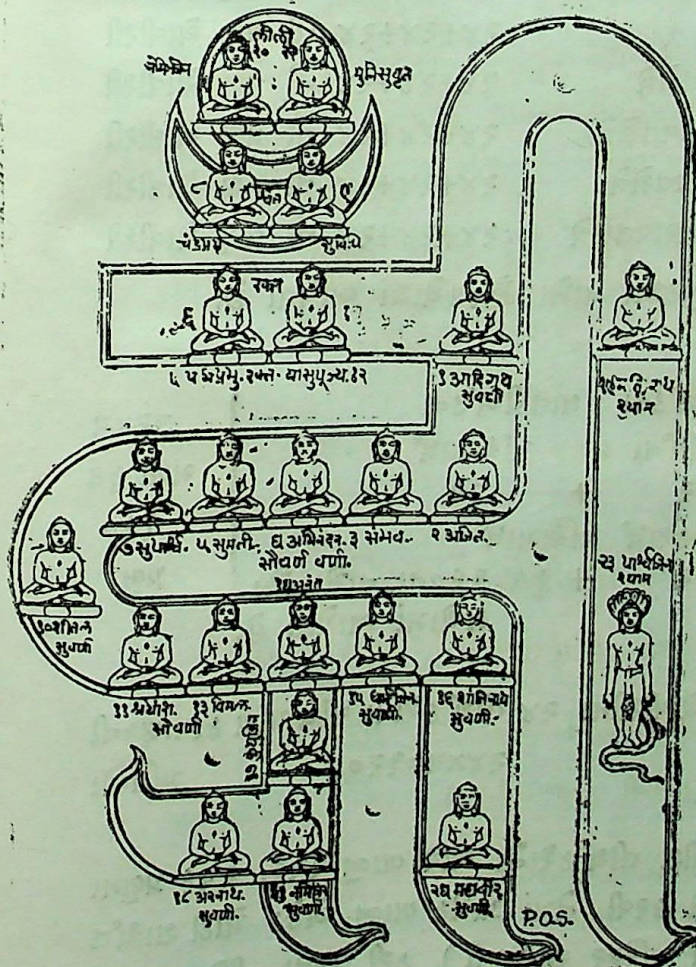 लीली
मुनिसुवृत
८
९
चंद्रप्रभ
सुविधि
रक्त
६
१२
५ पद्मप्रभु. रक्त. वासुपूज्य. १२
१ आदिनाथ
सुवर्णी
७ सुपार्श्व. ५ सुमती. ४ अभिनंदन. ३ संभव. २ अजित.
सौवर्ण वर्णी.
१४ अनंत
२३ पार्श्वजिन
श्याम
१० शीतल
सुवर्णी
११ श्रेयांश. १३ विमल.
सौवर्णी
१५ धर्मजिन
सुवर्णी.
१६ शांतिनाथ
सुवर्णी.
१७ कुंथुजिन
१८ अरनाथ.
सुवर्णी.
नमिजिन
सुवर्णी
२४ महावीर
सुवर्णी
P.O.S.